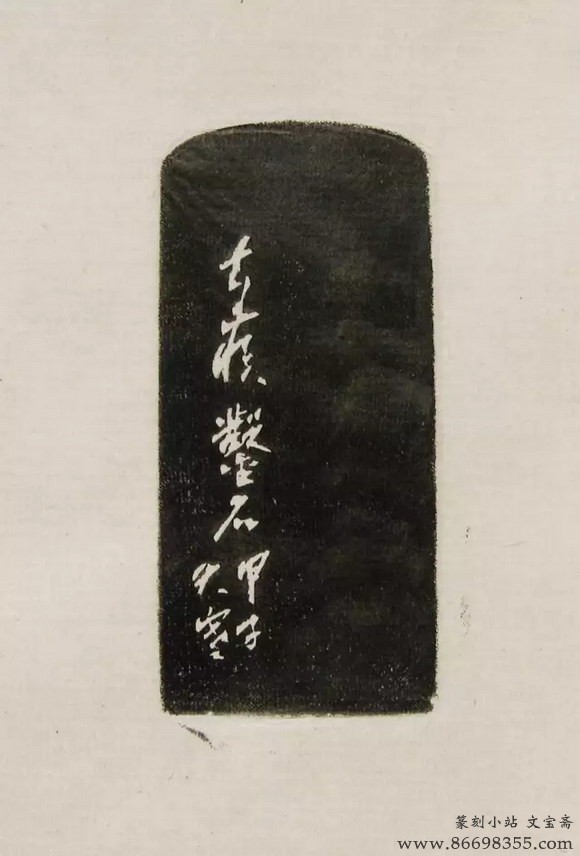 鑿石
甲子
大寒
篆刻小站 文宝斋
www.86698355.com